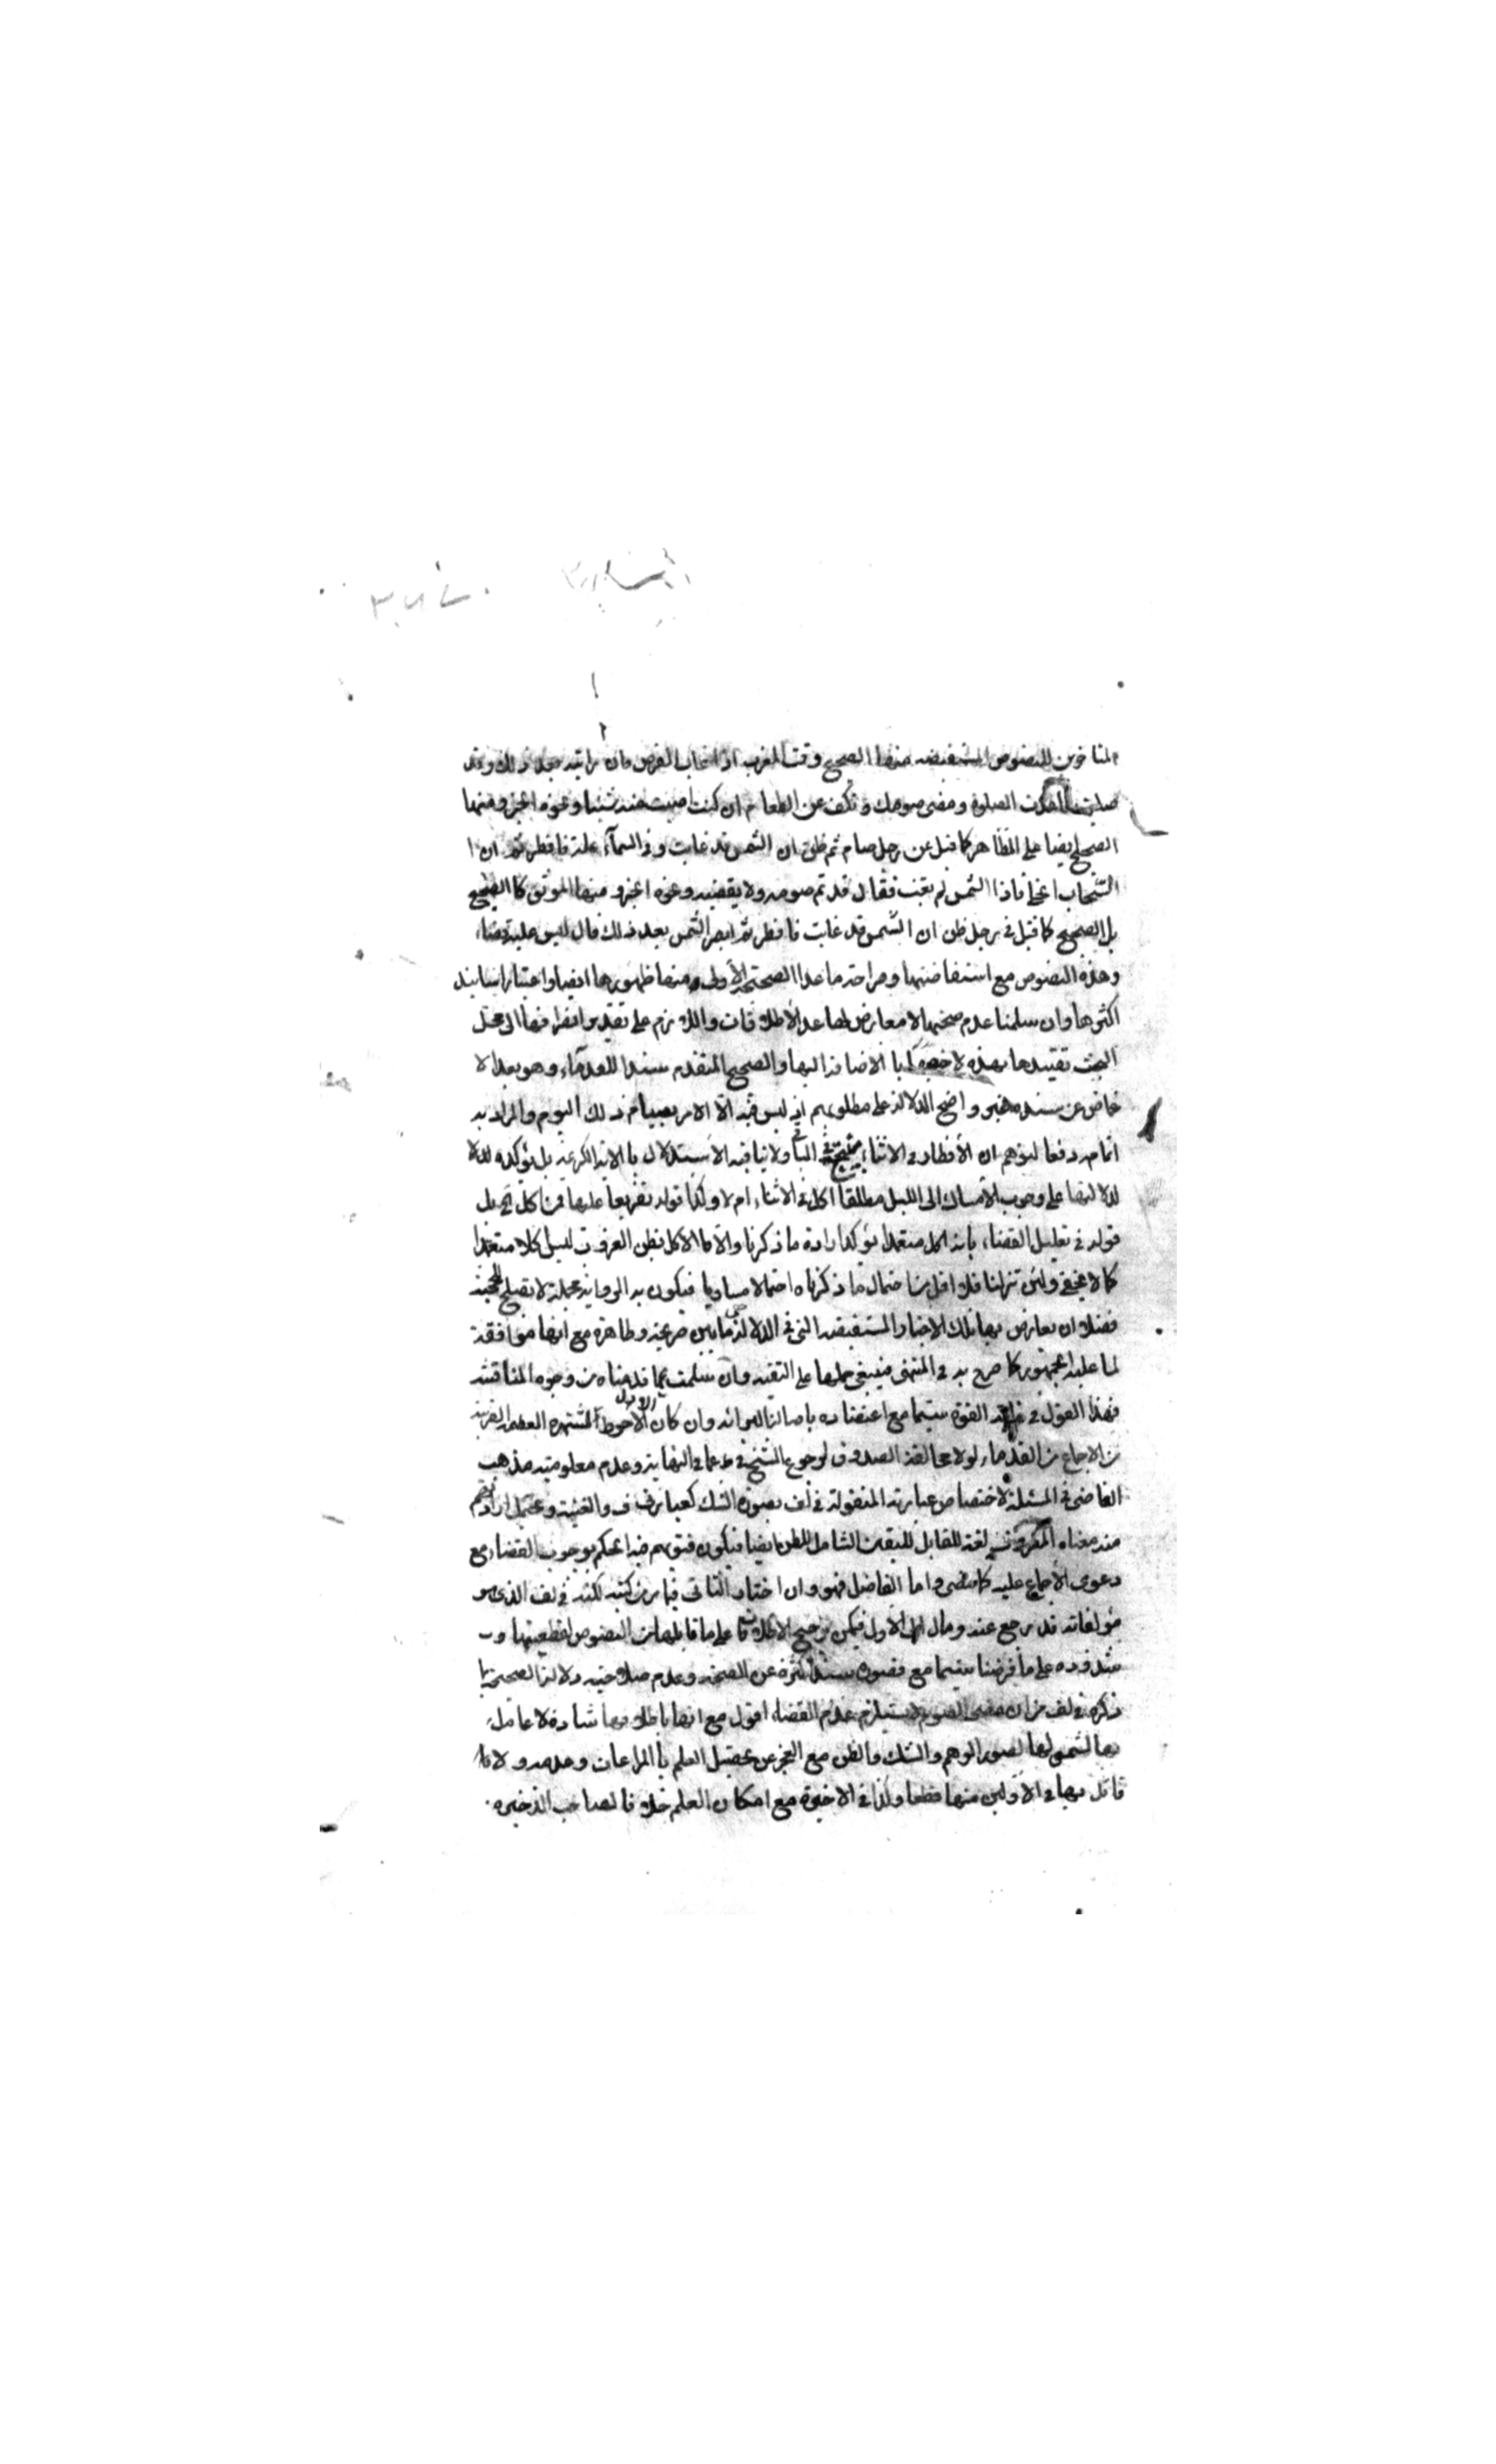 المتأخرين للنصوص المستفيضه منها الصحيح وقت المغرب اذا غاب القرص فان رايته بعد ذلك وقد
صليت اعدت الصلوة ومضى صومك وتكف عن الطعام ان كنت اصبت منه شيئا ونحوه الخبر ومنها
الصحيح ايضا على الظاهر كما قيل عن رجل صام ثم ظن ان الشمس قد غابت وفي السماء علة فافطر ثم ان
السّحاب انجلى فاذا الشمس لم يغب فقال قد تم صومه ولا يقضيه ونحوه الخبر ومنها الموثق كالصحيح
بل الصحيح كما قيل في رجل ظن ان الشمس قد غابت فافطر ثم ابصر الشمس بعد ذلك قال ليس عليه قضاء
وهذه النصوص مع استفاضتها وصراحة ما عدا الصحيح الأول منها وظهورها ايضا واعتبار اسانيد
اكثرها وان سلمنا عدم صحتها لا معارض لها عدا الأطلاقات واللازم على تقدير انصرافها الى محل
البحث تقييدها بهذه لاخصيتها بالاضافة اليها والصحيح المتقدم سندا للقدماء وهو بعد الا
غماض عن سنده غير واضح الدلالة على مطلوبهم اذ ليس فيه الا الامر بصيام ذلك اليوم والمراد به
اتمامه دفعا لتوهم ان الأفطار في الاثناء الباقي ولا ينافيه الاستدلال بالاية الكريمة بل يؤكده لدلا
لدلالتها على وجوب الأمساك الى الليل مطلقا اكل في الاثناء ام لا وكذا قوله تفريعا عليها فمن اكل الخ بل
قوله في تعليل القضاء بانه اكل متعمدا يؤكد ارادة ما ذكرنا والّا فالاكل بظن الغروب ليس اكلا متعمدا
كما لا يخفى ولئن تنزلنا فلا اقل من احتمال ما ذكرناه احتمالا مساويا فيكون به الرواية مجملة لا تصلح للحجية
فضلا ان يعارض بها تلك الاخبار المستفيضه التي هي في الدلالة ما بين صريحة وظاهرة مع انها موافقة
لما عليه الجمهور كما صرح به في المنتهى فينبغي حملها على التقية وان سلمت عما قدمناه من وجوه المناقشة
فهذا القول في غاية القوة سيّما مع اعتضاده باصالة البرائه وان كان الأحوط الاول للشهرة العظيمه القريبة
من الاجماع من القدماء لولا مخالفة الصدوق لرجوع الشيخ في ط عما في النهاية وعدم معلومية مذهب
القاضى في المسئلة لاختصاص عبارته المنقولة في لف بصورة الشك كعبارتي ف والغنية ويحتمل ارادتهم
منه معناه المعروف لغة المقابل لليقين الشامل للظن ايضا فيكون فتويهم فيه الحكم بوجوب القضاء مع
دعوى الأجماع عليه كما مضى واما الفاضل فهو وان اختار الثاني فيما من كتبه لكنه في لف الذي هو
مؤلفاته قد رجع عنه ومال الى الأول فيمكن ترجيح الاطلاقات على ما قابلها من النصوص لقطعيتها و
شذوذه على ما فرضنا سيما مع قصور سند اكثره عن الصحة وعدم صلاحية دلالة الصحيح بما
ذكره في لف من ان مضى الصوم لا يستلزم عدم القضاء اقول مع انها باطلاقها شاذة لا عامل
بها لشمولها لصور الوهم والشك والظن مع العجز عن تحصيل العلم بالمراعات وعدمه ولا
قائل بها في الأولين منها قطعا وكذا في الاخيرة مع امكان العلم خلافا لصاحب الذخيرة